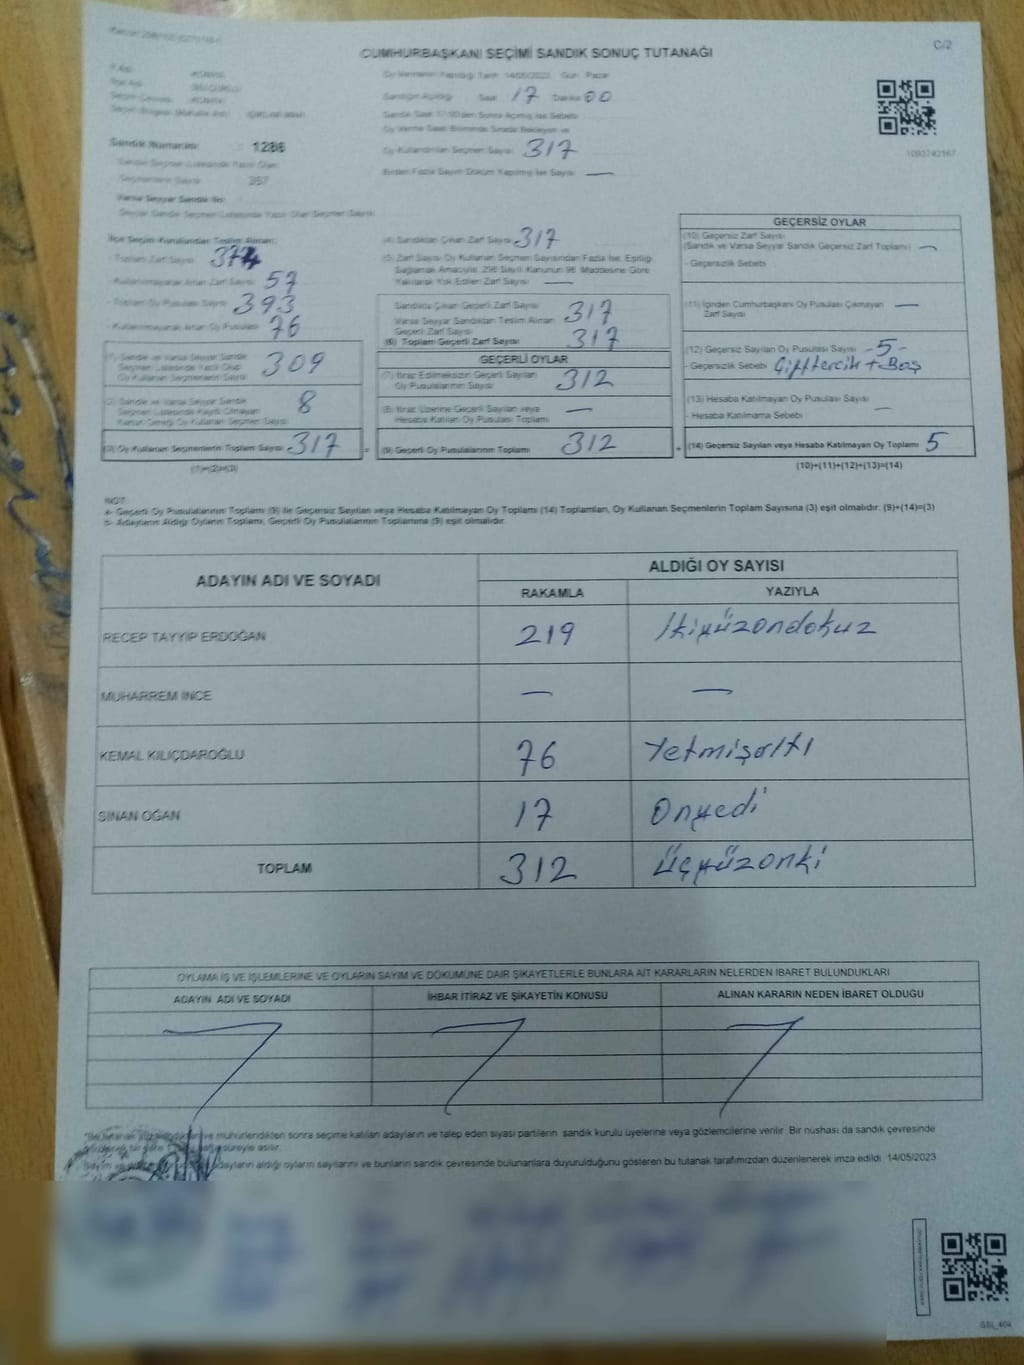 C/2
CUMHURBAŞKANI SEÇİMİ SANDIK SONUÇ TUTANAĞI
Oy Vermenin Yapıldığı Tarih 14/05/2023 Gün: Pazar
Sandığın Açıldığı Saat 17 Dakika 00
Oy Kullandırılan Seçmen Sayısı 317
Birden Fazla Sayım Döküm Yapılmış İse Sayısı —
Sandık Numarası : 1286
Seçmenlerin Sayısı 357
1093742167
İlçe Seçim Kurulundan Teslim Alınan;
- Toplam Zarf Sayısı 374
- Kullanılmayarak Artan Zarf Sayısı 57
- Toplam Oy Pusulası Sayısı 393
- Kullanılmayarak Artan Oy Pusulası 76
(1) Sandık ve Varsa Seyyar Sandık
Seçmen Listesinde Kayıtlı Olup
Oy Kullanan Seçmenlerin Sayısı 309
(2) Sandık ve Varsa Seyyar Sandık
Seçmen Listesinde Kayıtlı Olmayan
Kanun Gereği Oy Kullanan Seçmen Sayısı 8
(3) Oy Kullanan Seçmenlerin Toplam Sayısı 317 =
(1)+(2)=(3)
(4) Sandıktan Çıkan Zarf Sayısı 317
(5) Zarf Sayısı Oy Kullanan Seçmen Sayısından Fazla İse, Eşitliği
Sağlamak Amacıyla, 298 Sayılı Kanunun 98. Maddesine Göre
Yakılarak Yok Edilen Zarf Sayısı —
Sandıkta Çıkan Geçerli Zarf Sayısı 317
Varsa Seyyar Sandıktan Teslim Alınan
Geçerli Zarf Sayısı
(6) Toplam Geçerli Zarf Sayısı 317
GEÇERLİ OYLAR
(7) İtiraz Edilmeksizin Geçerli Sayılan
Oy Pusulalarının Sayısı 312
(8) İtiraz Üzerine Geçerli Sayılan veya
Hesaba Katılan Oy Pusulası Toplamı —
(9) Geçerli Oy Pusulalarının Toplamı 312 +
GEÇERSİZ OYLAR
(10) Geçersiz Zarf Sayısı
(Sandık ve Varsa Seyyar Sandık Geçersiz Zarf Toplamı) —
- Geçersizlik Sebebi
(11) İçinden Cumhurbaşkanı Oy Pusulası Çıkmayan
Zarf Sayısı —
(12) Geçersiz Sayılan Oy Pusulası Sayısı -5-
- Geçersizlik Sebebi Çifttercih + Boş
(13) Hesaba Katılmayan Oy Pusulası Sayısı
- Hesaba Katılmama Sebebi —
(14) Geçersiz Sayılan veya Hesaba Katılmayan Oy Toplamı 5
(10)+(11)+(12)+(13)=(14)
NOT:
a- Geçerli Oy Pusulalarının Toplamı (9) ile Geçersiz Sayılan veya Hesaba Katılmayan Oy Toplamı (14) Toplamları, Oy Kullanan Seçmenlerin Toplam Sayısına (3) eşit olmalıdır. (9)+(14)=(3)
b- Adayların Aldığı Oyların Toplamı, Geçerli Oy Pusulalarının Toplamına (9) eşit olmalıdır.
ADAYIN ADI VE SOYADI
ALDIĞI OY SAYISI
RAKAMLA YAZIYLA
RECEP TAYYİP ERDOĞAN 219 İkiyüzondokuz
MUHARREM İNCE — —
KEMAL KILIÇDAROĞLU 76 Yetmişaltı
SİNAN OĞAN 17 Onyedi
TOPLAM 312 Üçyüzonki
OYLAMA İŞ VE İŞLEMLERİNE VE OYLARIN SAYIM VE DÖKÜMÜNE DAİR ŞİKAYETLERLE BUNLARA AİT KARARLARIN NELERDEN İBARET BULUNDUKLARI
ADAYIN ADI VE SOYADI İHBAR İTİRAZ VE ŞİKAYETİN KONUSU ALINAN KARARIN NEDEN İBARET OLDUĞU
ve mühürlendikten sonra seçime katılan adayların ve talep eden siyasi partilerin sandık kurulu üyelerine veya gözlemcilerine verilir. Bir nüshası da sandık çevresinde
süreyle asılır.
adayların aldığı oyların sayılarını ve bunların sandık çevresinde bulunanlara duyurulduğunu gösteren bu tutanak tarafımızdan düzenlenerek imza edildi. 14/05/2023